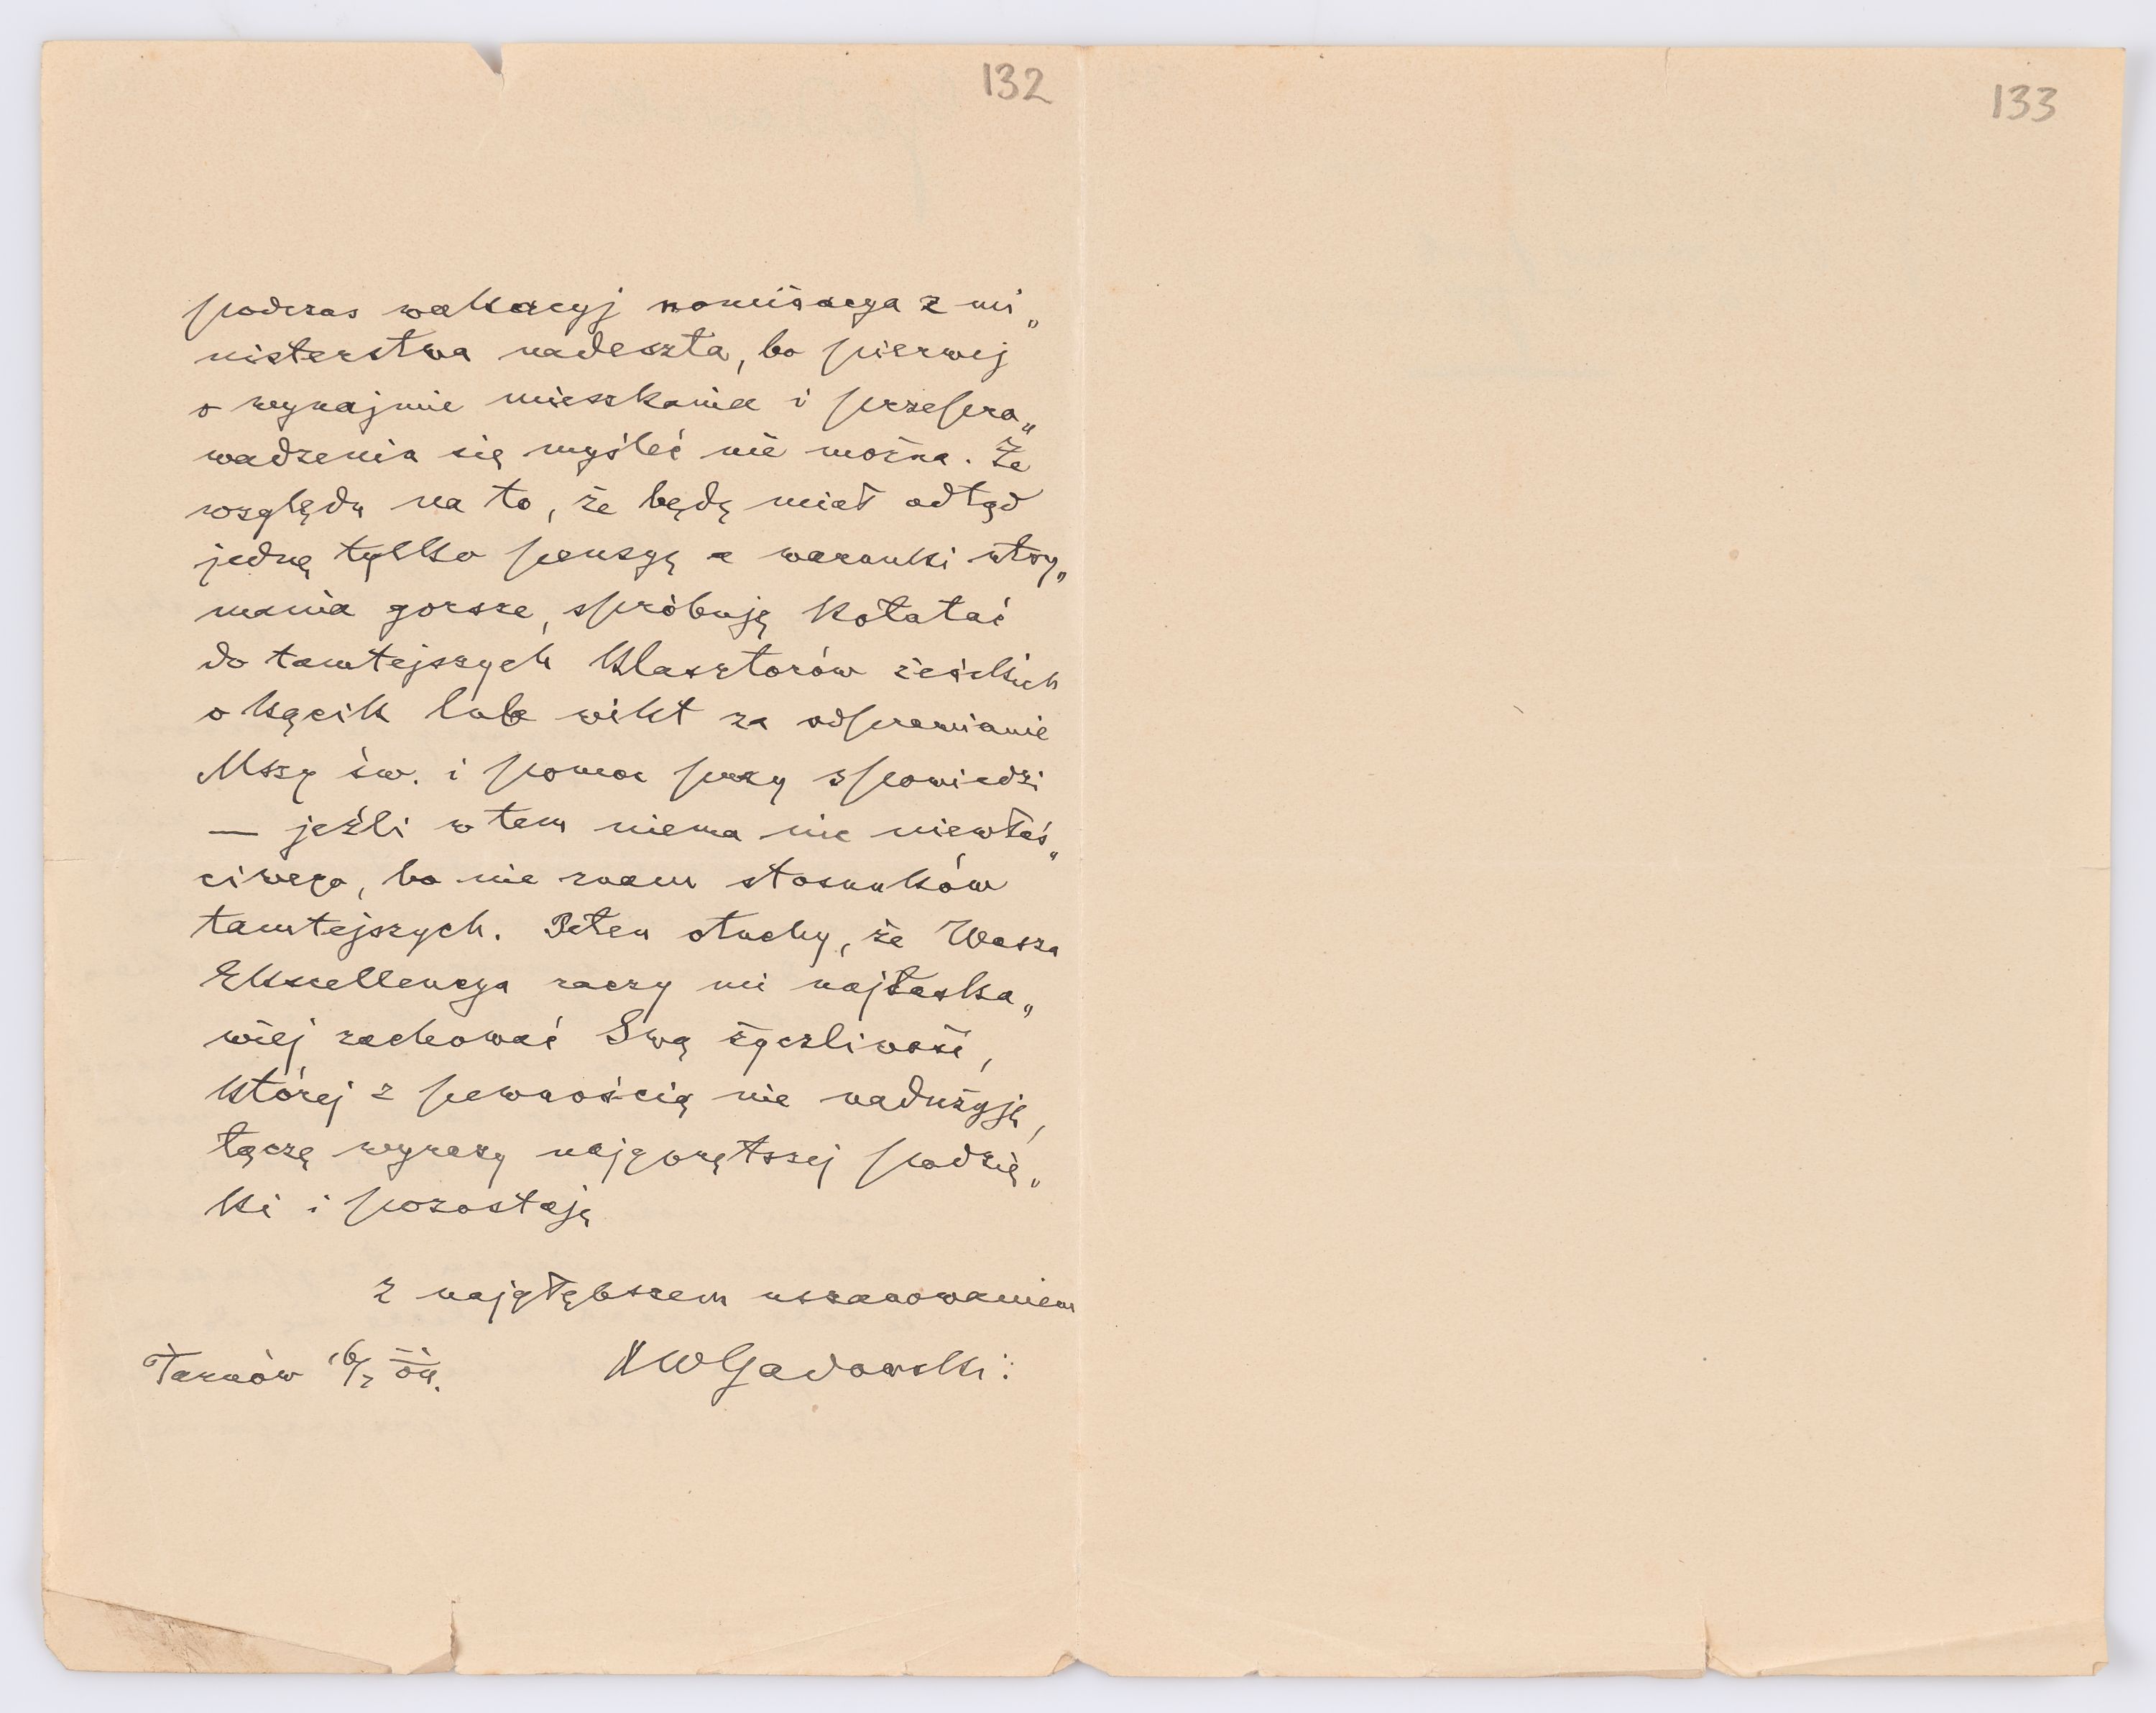 132
133
podczas wakacyj nominacya z mi„
nisterstwa nadeszła, bo pierwej
o wynajmie mieszkania i przepro„
wadzenia się myśleć nie można. Ze
względu na to, że będę miał odtąd
jedną tylko pensyę a warunki utrzy„
mania gorsze, spróbuję kołatać
do tamtejszych klasztorów żeńskich
o kącik lub wikt za odprawianie
Mszy św. i pomoc przy spowiedzi
— jeźli w tem niema nic niewłaś„
ciwego, bo nie znam stosunków
tamtejszych. Pełen otuchy, że Wasza
Ekscellencya raczy mi najłaska„
wiej zachować Swą życzliwość,
której z pewnością nie nadużyję,
łączę wyrazy najgorętszej podzię„
ki i pozostaję
z najgłębszem uszanowaniem
Tarnów 16/7 04. XWGadowski